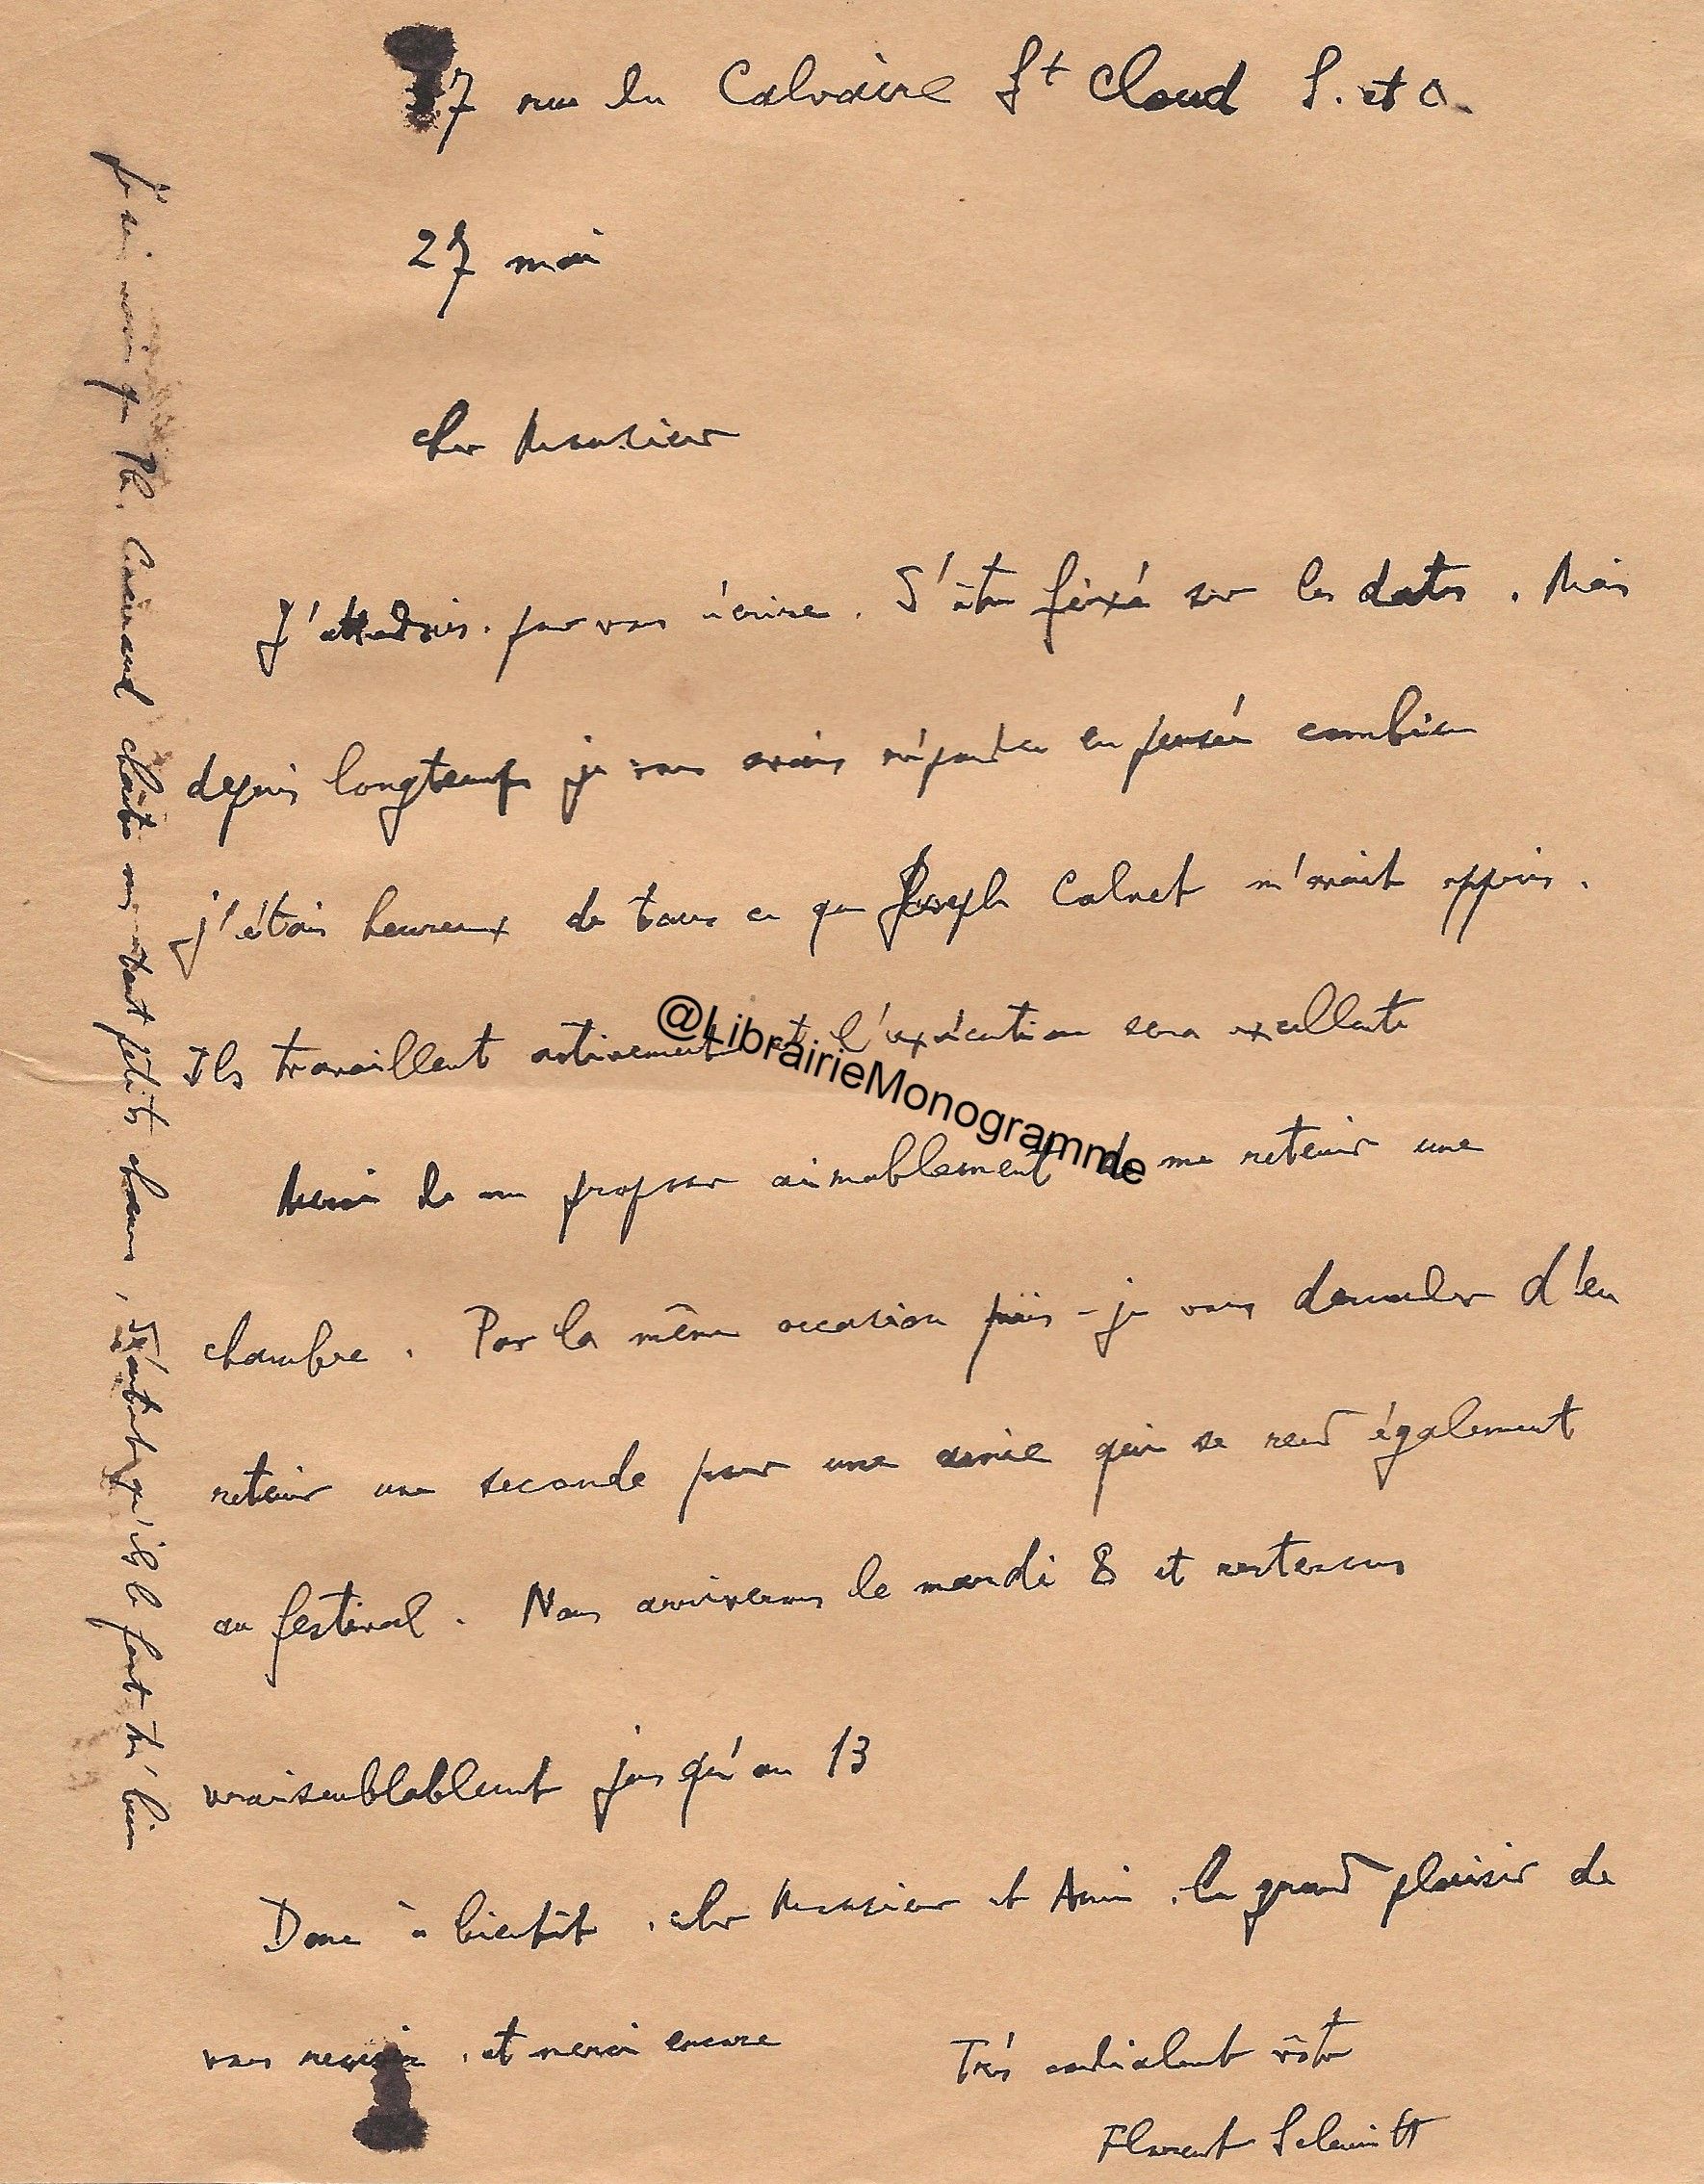 7 rue du Calvaire St Cloud S. et O.
27 mai
cher Monsieur
J'attendais, pour vous écrire. D'être fixé sur les dates. Mais
depuis longtemps je vous avais répondu en pensée combien
j'étais heureux de tous ce que Joseph Calvet m'avait appris.
Ils travaillent activement et l'exécution sera excellente
Merci de me proposer aimablement de me retenir une
chambre. Par la même occasion puis-je vous demander d'en
retenir une seconde pour une amie qui se rend également
au festival. Nous arriverons le mardi 8 et resterons
vraisemblablement jusqu'au 13
Donc à bientôt, cher Monsieur et Ami, le grand plaisir de
vous revoir, et merci encore
Très cordialement vôtre
Florent Schmitt
Je sais aussi que Ph. Caillard chante mes tout petits chœurs, et qu'ils le font très bien
@LibrairieMonogramme